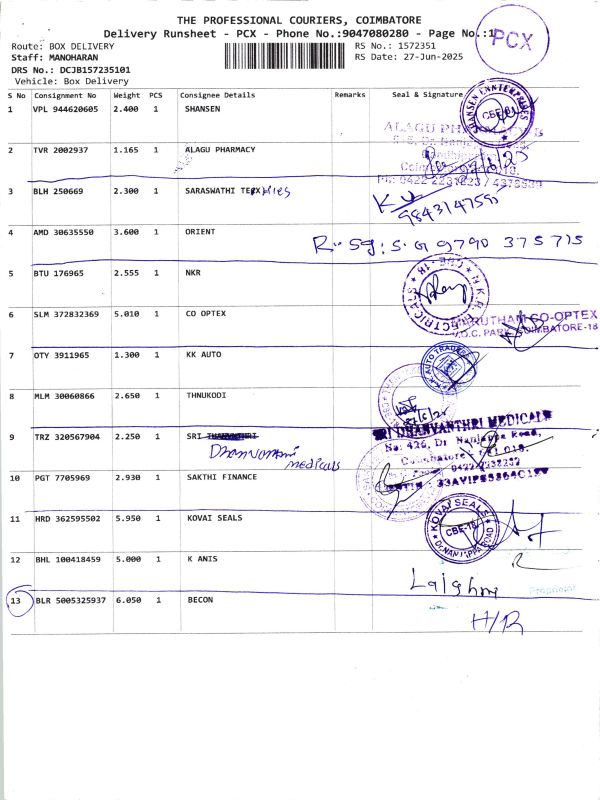 THE PROFESSIONAL COURIERS, COIMBATORE
Delivery Runsheet - PCX - Phone No.:9047080280 - Page No.:1
PCX
Route: BOX DELIVERY
RS No.: 1572351
Staff: MANOHARAN
RS Date: 27-Jun-2025
DRS No.: DCJB157235101
Vehicle: Box Delivery
S No Consignment No Weight PCS Consignee Details Remarks Seal & Signature
1 VPL 944620605 2.400 1 SHANSEN
CBE
ALAGU
2 TVR 2002937 1.165 1 ALAGU PHARMACY
3 BLH 250669 2.300 1 SARASWATHI TEX
4 AMD 30635550 3.600 1 ORIENT
9790 375715
5 BTU 176965 2.555 1 NKR
N.K.R. ELECTRICALS CBE-18
6 SLM 372832369 5.010 1 CO OPTEX
CO-OPTEX
V.O.C. PARK, COIMBATORE-18
7 OTY 3911965 1.300 1 KK AUTO
K.K AUTO TRADERS
8 MLM 30060866 2.650 1 THNUKODI
SRI DHANVANTHRI MEDICALS
9 TRZ 320567904 2.250 1 SRI
No: 426, Dr. Nanjappa Road,
Dhanvantri
Coimbatore - 641 018.
medicals
0422-2232232
10 PGT 7705969 2.930 1 SAKTHI FINANCE
11 HRD 362595502 5.950 1 KOVAI SEALS
KOVAI SEALS CBE-18 Dr.NANJAPPA ROAD
12 BHL 100418459 5.000 1 K ANIS
Proprietor
13 BLR 5005325937 6.050 1 BECON
H/R